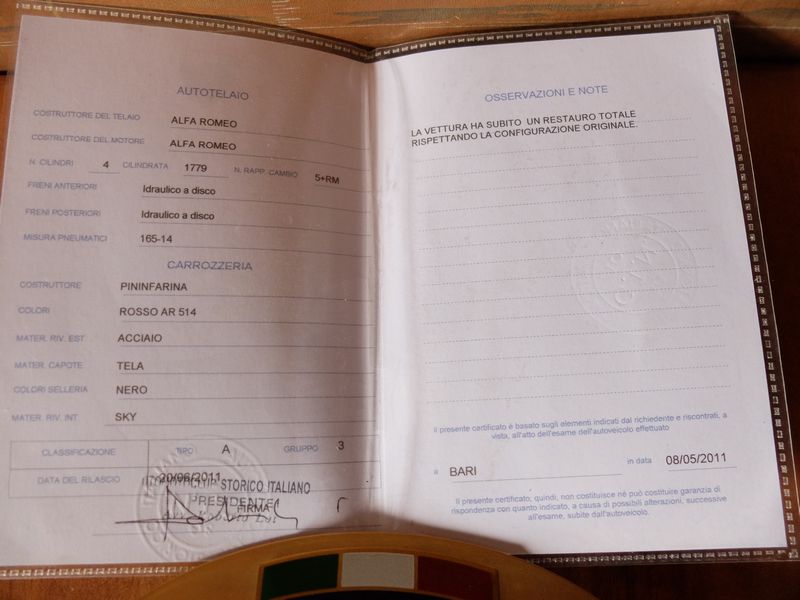 AUTOTELAIO
COSTRUTTORE DEL TELAIO ALFA ROMEO
COSTRUTTORE DEL MOTORE ALFA ROMEO
N. CILINDRI 4 CILINDRATA 1779 N. RAPP. CAMBIO 5+RM
FRENI ANTERIORI Idraulico a disco
FRENI POSTERIORI Idraulico a disco
MISURA PNEUMATICI 165-14
CARROZZERIA
COSTRUTTORE PININFARINA
COLORI ROSSO AR 514
MATER. RIV. EST. ACCIAIO
MATER. CAPOTE TELA
COLORI SELLERIA NERO
MATER. RIV. INT. SKY
CLASSIFICAZIONE TIPO A GRUPPO 3
DATA DEL RILASCIO 20/06/2011
STORICO ITALIANO
PRESIDENTE
FIRMA
OSSERVAZIONI E NOTE
LA VETTURA HA SUBITO UN RESTAURO TOTALE
RISPETTANDO LA CONFIGURAZIONE ORIGINALE.
Il presente certificato è basato sugli elementi indicati dal richiedente e riscontrati, a
vista, all'atto dell'esame dell'autoveicolo effettuato
a BARI in data 08/05/2011
Il presente certificato, quindi, non costituisce né può costituire garanzia di
rispondenza con quanto indicato, a causa di possibili alterazioni, successive
all'esame, subite dall'autoveicolo.